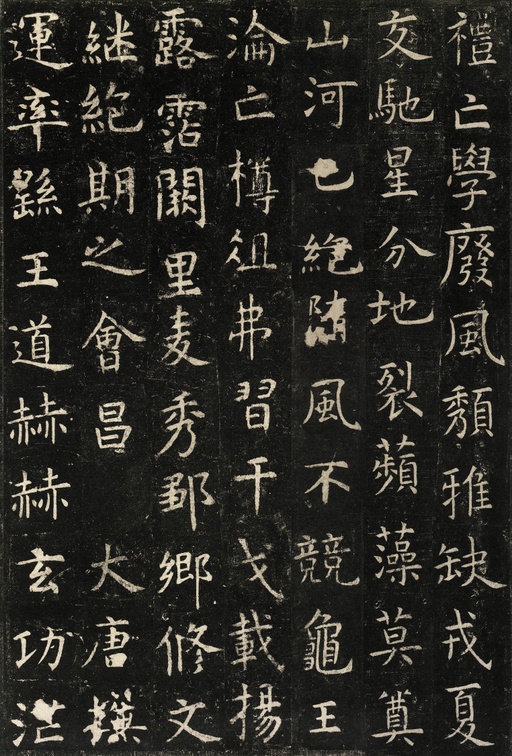 禮亡學廢風頽雅缺戎夏
交馳星分地裂蘋藻莫奠
山河已絕隋風不競龜王
淪亡樽俎弗習干戈載揚
露霑闕里麦秀鄒鄉修文
継絶期之會昌 大唐撰
運率繇王道赫赫玄功茫